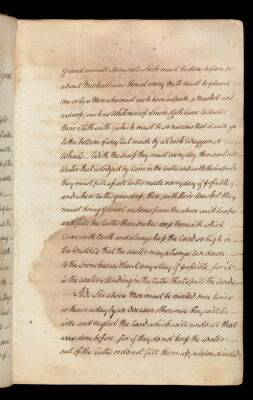 which must be done before or
about Michaelmas then at every mile must be placed
one or two Men who must each have a spade, a Basket and
a scoop, such as Whitners of Linen Cloth have to water
their Cloth with, which must be so narrow that it will go
to the bottom of any Cutt made by a Coach Waggon or
Wheels. With the scoop they must everyday throw out all
Water that is lodged by Rain in the Cutts and with their spade
they must fill up all Cutts made everyday if possible,
and where Cutts grow deep then with their basket they
must bring Gravel or stones from the above said heaps
and fill the Cutts three Inches deep from which
cover with Earth and always keep the Road so high in
the middle that the water may always run down
to the Trenches without any stay if possible, for it
is the water standing in the Cutts that spoils the Roads.
N.B. The above Men must be visited once twice
or thrice a day by an Overseer otherwise they will be
idle and neglect the Road which will undo all that
was done before, for if they do not keep the water
out of the Cutts or do not fill them up as before directed